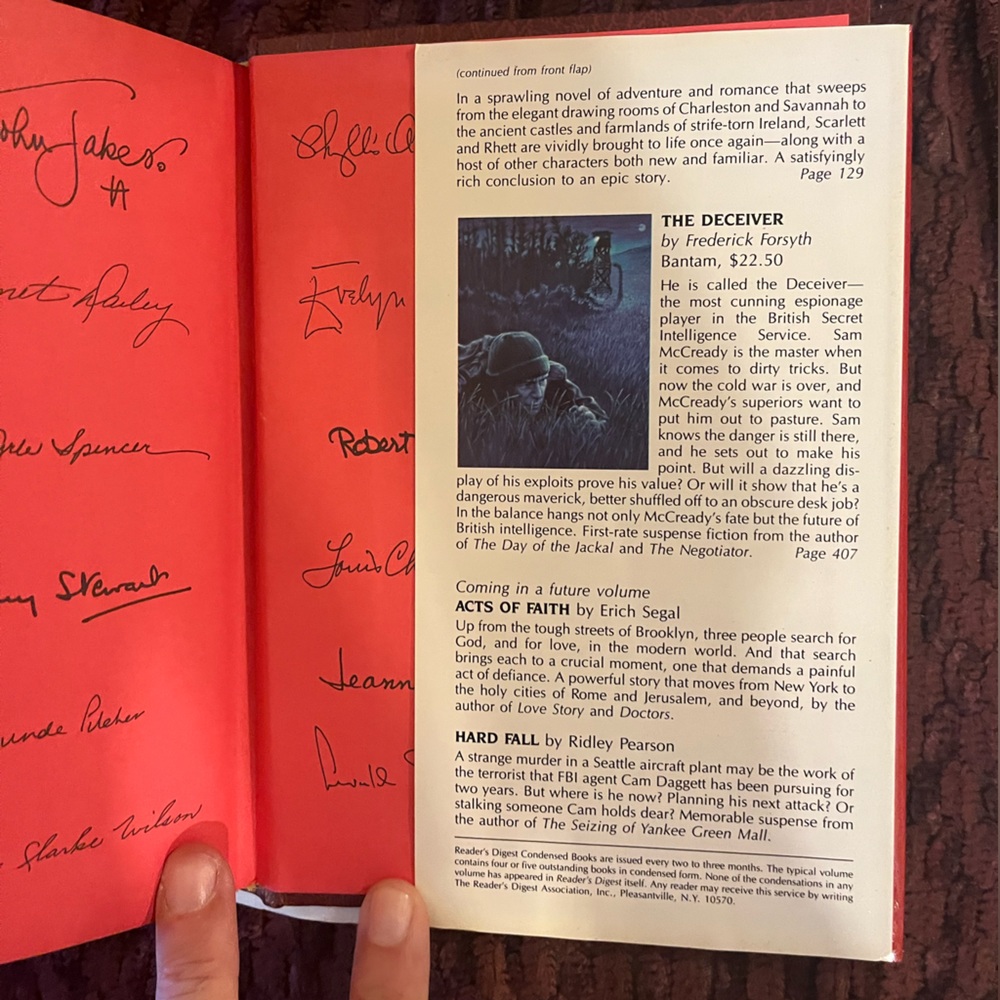 John Jakes
Dailey
Spencer
Stewart
Pilcher
Clarke Wilson
Phyllis
Evelyn
Robert
Louis
Jeann
(continued from front flap)
In a sprawling novel of adventure and romance that sweeps
from the elegant drawing rooms of Charleston and Savannah to
the ancient castles and farmlands of strife-torn Ireland, Scarlett
and Rhett are vividly brought to life once again—along with a
host of other characters both new and familiar. A satisfyingly
rich conclusion to an epic story. Page 129
THE DECEIVER
by Frederick Forsyth
Bantam, $22.50
He is called the Deceiver—
the most cunning espionage
player in the British Secret
Intelligence Service. Sam
McCready is the master when
it comes to dirty tricks. But
now the cold war is over, and
McCready's superiors want to
put him out to pasture. Sam
knows the danger is still there,
and he sets out to make his
point. But will a dazzling dis-
play of his exploits prove his value? Or will it show that he's a
dangerous maverick, better shuffled off to an obscure desk job?
In the balance hangs not only McCready's fate but the future of
British intelligence. First-rate suspense fiction from the author
of The Day of the Jackal and The Negotiator. Page 407
Coming in a future volume
ACTS OF FAITH by Erich Segal
Up from the tough streets of Brooklyn, three people search for
God, and for love, in the modern world. And that search
brings each to a crucial moment, one that demands a painful
act of defiance. A powerful story that moves from New York to
the holy cities of Rome and Jerusalem, and beyond, by the
author of Love Story and Doctors.
HARD FALL by Ridley Pearson
A strange murder in a Seattle aircraft plant may be the work of
the terrorist that FBI agent Cam Daggett has been pursuing for
two years. But where is he now? Planning his next attack? Or
stalking someone Cam holds dear? Memorable suspense from
the author of The Seizing of Yankee Green Mall.
Reader's Digest Condensed Books are issued every two to three months. The typical volume
contains four or five outstanding books in condensed form. None of the condensations in any
volume has appeared in Reader's Digest itself. Any reader may receive this service by writing
The Reader's Digest Association, Inc., Pleasantville, N.Y. 10570.